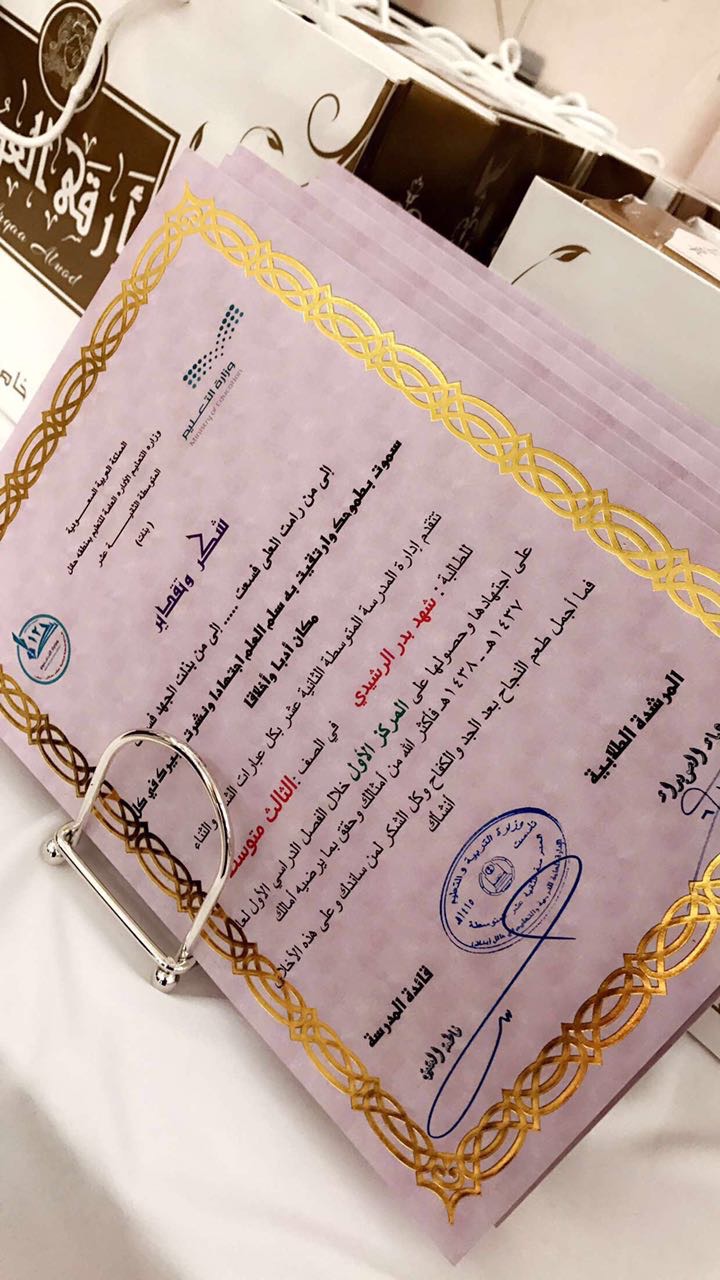 أرقى
Arqaa Aluod
وزارة التعليم
Ministry of Education
المملكة العربية السعودية
وزارة التعليم الإدارة العامة للتعليم بمنطقة حائل
المتوسطة الثانية عشر
(بنات)
شكر وتقدير
إلى من رامت العلى فسعت ..... إلى من بذلت الجهد
سموت بطموحك وارتقيت به سلم العلم اجتهادا ونشرت في كل
مكان أدبا وأخلاقا
تتقدم إدارة المدرسة المتوسطة الثانية عشر بكل عبارات والثناء
للطالبة : شهد بدر الرشيدي في الصف : الثالث متوسط
على اجتهادها وحصولها على المركز الأول خلال الفصل الدراسي الأول
١٤٣٧هـ - ١٤٣٨هـ فأكثر الله من أمثالك وحقق بما يرضيه أمالك
فما أجمل طعم النجاح بعد الجد والكفاح وكل الشكر لمن ساندك وعلى هذه الأخلاق
أنشأك
المرشدة الطلابية
قائدة المدرسة
وزارة التربية والتعليم